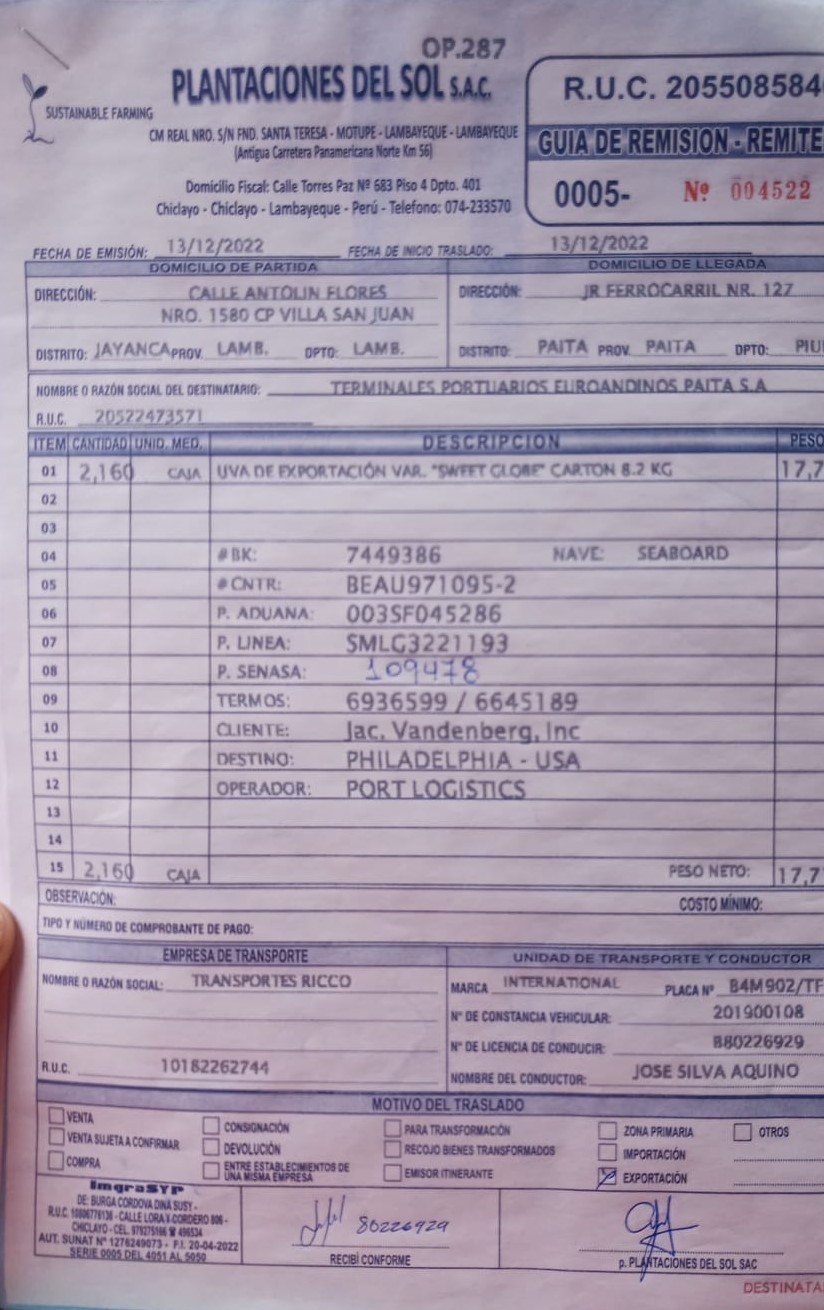 OP.287
PLANTACIONES DEL SOL S.A.C.
SUSTAINABLE FARMING
CM REAL NRO. S/N FND. SANTA TERESA - MOTUPE - LAMBAYEQUE - LAMBAYEQUE
(Antigua Carretera Panamericana Norte Km 56)
Domicilio Fiscal: Calle Torres Paz Nº 683 Piso 4 Dpto. 401
Chiclayo - Chiclayo - Lambayeque - Perú - Telefono: 074-233570
R.U.C. 205508584
GUIA DE REMISION - REMITE
0005- Nº 004522
FECHA DE EMISIÓN: 13/12/2022 FECHA DE INICIO TRASLADO: 13/12/2022
DOMICILIO DE PARTIDA DOMICILIO DE LLEGADA
DIRECCIÓN: CALLE ANTOLIN FLORES DIRECCIÓN: JR FERROCARRIL NR. 127
NRO. 1580 CP VILLA SAN JUAN
DISTRITO: JAYANCA PROV. LAMB. DPTO: LAMB. DISTRITO: PAITA PROV. PAITA DPTO: PIU
NOMBRE O RAZÓN SOCIAL DEL DESTINATARIO: TERMINALES PORTUARIOS EUROANDINOS PAITA S.A
R.U.C. 20522473571
ITEM CANTIDAD UNID. MED. DESCRIPCION PESO
01 2,160 CAJA UVA DE EXPORTACIÓN VAR. "SWEET GLOBE" CARTON 8.2 KG 17,7
02
03
04 #BK: 7449386 NAVE: SEABOARD
05 #CNTR: BEAU971095-2
06 P. ADUANA: 003SF045286
07 P. LINEA: SMLG3221193
08 P. SENASA: 109478
09 TERMOS: 6936599 / 6645189
10 CLIENTE: Jac. Vandenberg, Inc
11 DESTINO: PHILADELPHIA - USA
12 OPERADOR: PORT LOGISTICS
13
14
15 2,160 CAJA PESO NETO: 17,7
OBSERVACIÓN: COSTO MÍNIMO:
TIPO Y NÚMERO DE COMPROBANTE DE PAGO:
EMPRESA DE TRANSPORTE UNIDAD DE TRANSPORTE Y CONDUCTOR
NOMBRE O RAZÓN SOCIAL: TRANSPORTES RICCO MARCA INTERNATIONAL PLACA Nº B4M902/TF
Nº DE CONSTANCIA VEHICULAR: 201900108
Nº DE LICENCIA DE CONDUCIR: B80226929
R.U.C. 10182262744 NOMBRE DEL CONDUCTOR: JOSE SILVA AQUINO
MOTIVO DEL TRASLADO
VENTA CONSIGNACIÓN PARA TRANSFORMACIÓN ZONA PRIMARIA OTROS
VENTA SUJETA A CONFIRMAR DEVOLUCIÓN RECOJO BIENES TRANSFORMADOS IMPORTACIÓN
COMPRA ENTRE ESTABLECIMIENTOS DE UNA MISMA EMPRESA EMISOR ITINERANTE EXPORTACIÓN
ImgraSYP
DE: BURGA CORDOVA DINA SUSY -
CALLE LORA Y CORDERO 806 -
AUT. SUNAT Nº 1276249073 - F.I. 20-04-2022
SERIE 0005 DEL 4051 AL 5050
80226929
RECIBÍ CONFORME
p. PLANTACIONES DEL SOL SAC
DESTINATA